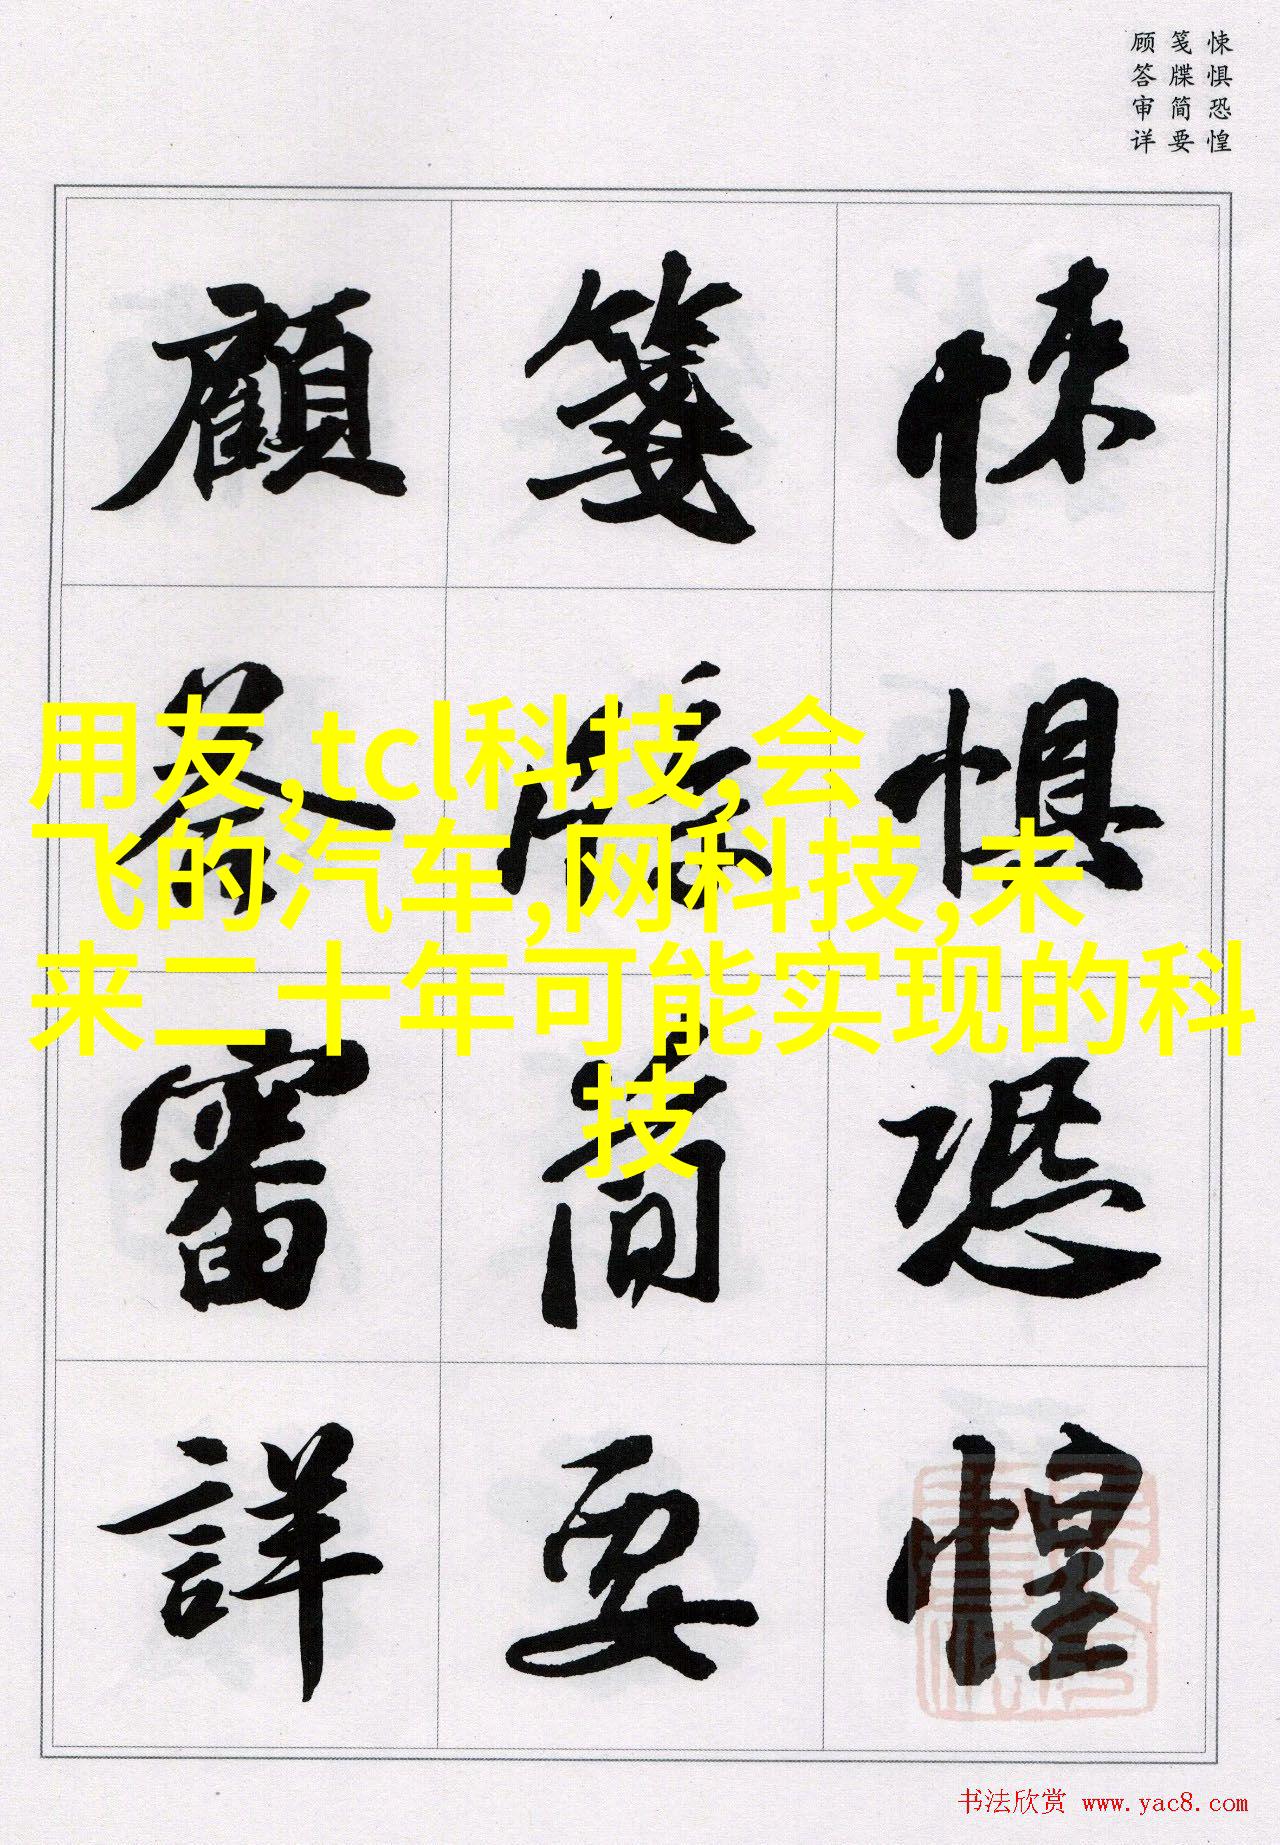 悚惧恐惶
笺牒简要
顾答审详
悚惧恐惶
箋牒简要
顧答審詳
用友,tcl科技,会
飞的汽车,网科技,未
来二十年可能实现的科
技
书法欣赏 www.yac8.com